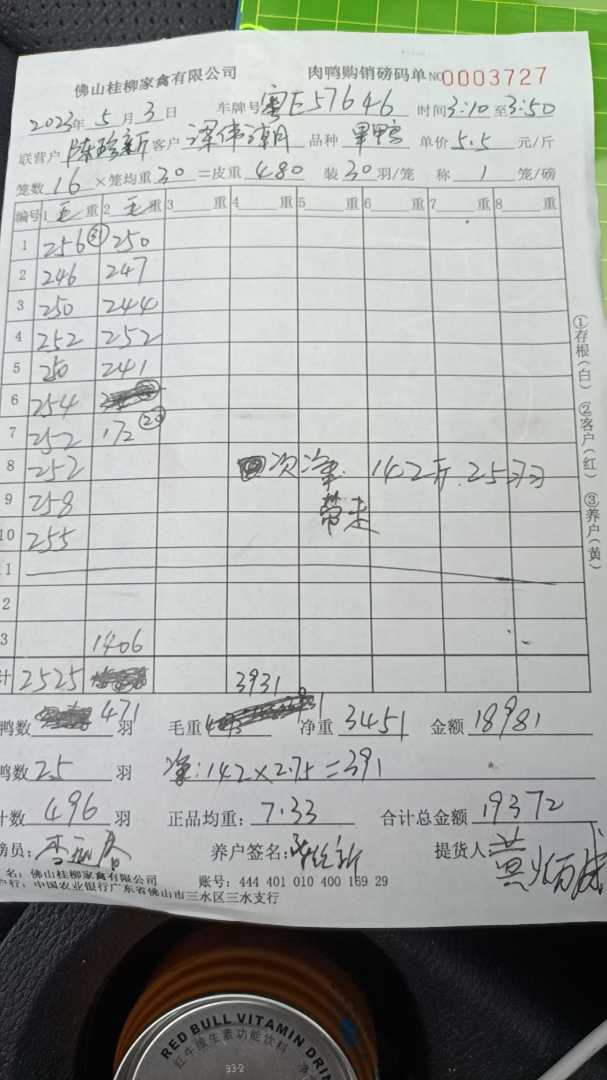 佛山桂柳家禽有限公司 肉鸭购销磅码单 NO 0003727
2023年5月3日 车牌号 粤E57646 时间3:10至3:50
联营户 客户 品种 单价5.5元/斤
笼数16×笼均重30=皮重480 装30羽/笼 称1笼/磅
编号 1毛重 2毛重 3重 4重 5重 6重 7重 8重
1 256 250
2 246 247
3 250 244
4 252 252
5 250 241
6 254
7 252 172
8 252 次净 142斤 25羽
9 258 带走
10 255
1
2
3 1406
计 2525 3931
鸭数471羽 毛重 净重3451 金额18981
鸭数25羽 净:142×2.75=391
计数496羽 正品均重:7.33 合计总金额19372
磅员: 养户签名: 提货人:
名:佛山桂柳家禽有限公司 账号:444 401 010 400 169 29
户行:中国农业银行广东省佛山市三水区三水支行
①存根(白)②客户(红)③养户(黄)
RED BULL VITAMIN DRIN
红牛维生素功能饮料